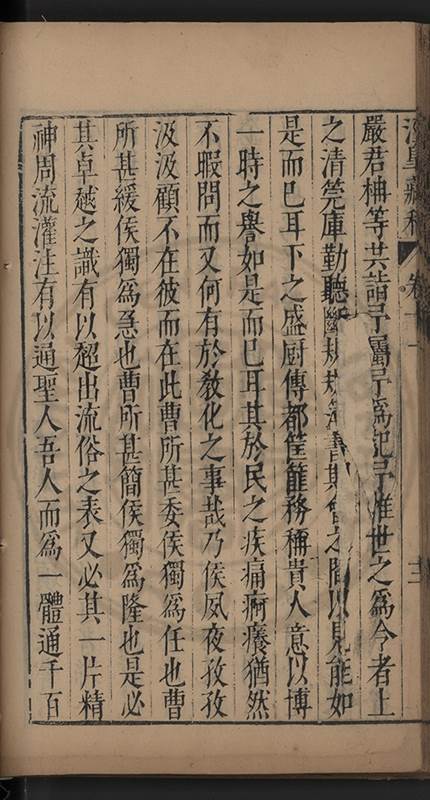 嚴君柟等共詣予屬予為記予惟世之為今者上
之清筦庫勤聽斷規規簿書期會之間以見能如
是而已耳下之盛厨傳都筐篚務稱貴人意以博
一時之譽如是而已耳其於民之疾痛痾癢猶然
不暇問而又何有於敎化之事哉乃侯夙夜孜孜
汲汲顧不在彼而在此曹所甚委侯獨為任也曹
所甚緩侯獨為急也曹所甚簡侯獨為隆也是必
其卓越之識有以超出流俗之表又必其一片精
神周流灌注有以通聖人吾人而為一體通千百